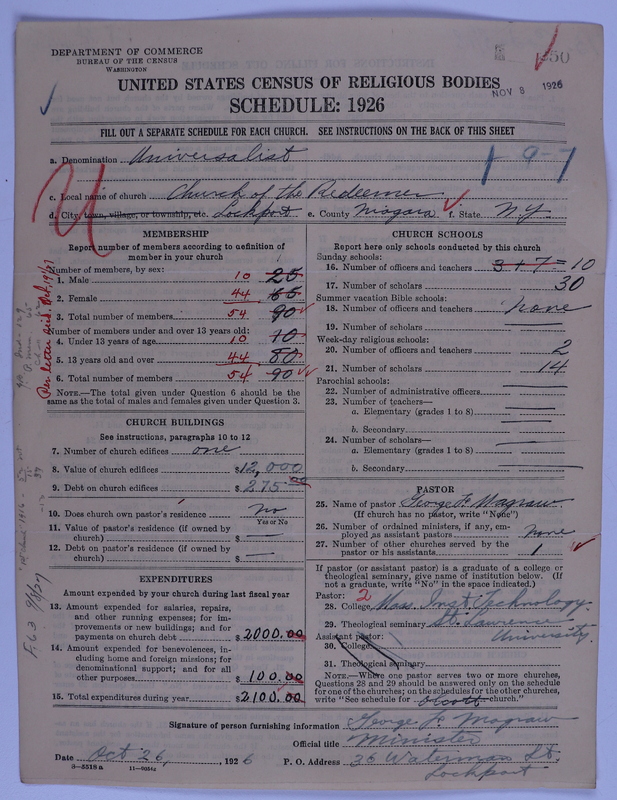 DEPARTMENT OF COMMERCE
BUREAU OF THE CENSUS
WASHINGTON
UNITED STATES CENSUS OF RELIGIOUS BODIES
NOV 8 1926
SCHEDULE: 1926
FILL OUT A SEPARATE SCHEDULE FOR EACH CHURCH. SEE INSTRUCTIONS ON THE BACK OF THIS SHEET
a. Denomination Universalist
9-7
c. Local name of church Church of the Redeemer
d. City, town, village, or township, etc. Lockport e. County Niagara f. State N.Y.
U
MEMBERSHIP
Report number of members according to definition of member in your church
Number of members, by sex:
1. Male 10 25
2. Female 44 65
3. Total number of members 54 90
Number of members under and over 13 years old:
4. Under 13 years of age 10 10
5. 13 years old and over 44 80
6. Total number of members 54 90
NOTE.—The total given under Question 6 should be the same as the total of males and females given under Question 3.
CHURCH BUILDINGS
See instructions, paragraphs 10 to 12
7. Number of church edifices one
8. Value of church edifices $12,000
9. Debt on church edifices $275.00
10. Does church own pastor's residence No
Yes or No
11. Value of pastor's residence (if owned by church) $
12. Debt on pastor's residence (if owned by church) $
EXPENDITURES
Amount expended by your church during last fiscal year
13. Amount expended for salaries, repairs, and other running expenses; for improvements or new buildings; and for payments on church debt $2000.00
14. Amount expended for benevolences, including home and foreign missions; for denominational support; and for all other purposes $100.00
15. Total expenditures during year $2100.00
CHURCH SCHOOLS
Report here only schools conducted by this church
Sunday schools:
16. Number of officers and teachers 3+7=10
17. Number of scholars 30
Summer vacation Bible schools:
18. Number of officers and teachers none
19. Number of scholars
Week-day religious schools:
20. Number of officers and teachers 2
21. Number of scholars 14
Parochial schools:
22. Number of administrative officers
23. Number of teachers—
a. Elementary (grades 1 to 8)
b. Secondary
24. Number of scholars—
a. Elementary (grades 1 to 8)
b. Secondary
PASTOR
25. Name of pastor George F. Magraw
(If church has no pastor, write "None")
26. Number of ordained ministers, if any, employed as assistant pastors none
27. Number of other churches served by the pastor or his assistants 1
If pastor (or assistant pastor) is a graduate of a college or theological seminary, give name of institution below. (If not a graduate, write "No" in the space indicated.)
Pastor: 2
28. College Mass. Inst. Technology
29. Theological seminary St. Lawrence University
Assistant pastor:
30. College
31. Theological seminary
NOTE.—Where one pastor serves two or more churches, Questions 28 and 29 should be answered only on the schedule for one of the churches; on the schedules for the other churches, write "See schedule for Olcott church."
Signature of person furnishing information George F. Magraw
Official title Minister
Date Oct 26, 1926 P. O. Address 36 Waterman St.
Lockport
8—5518a 11—9014